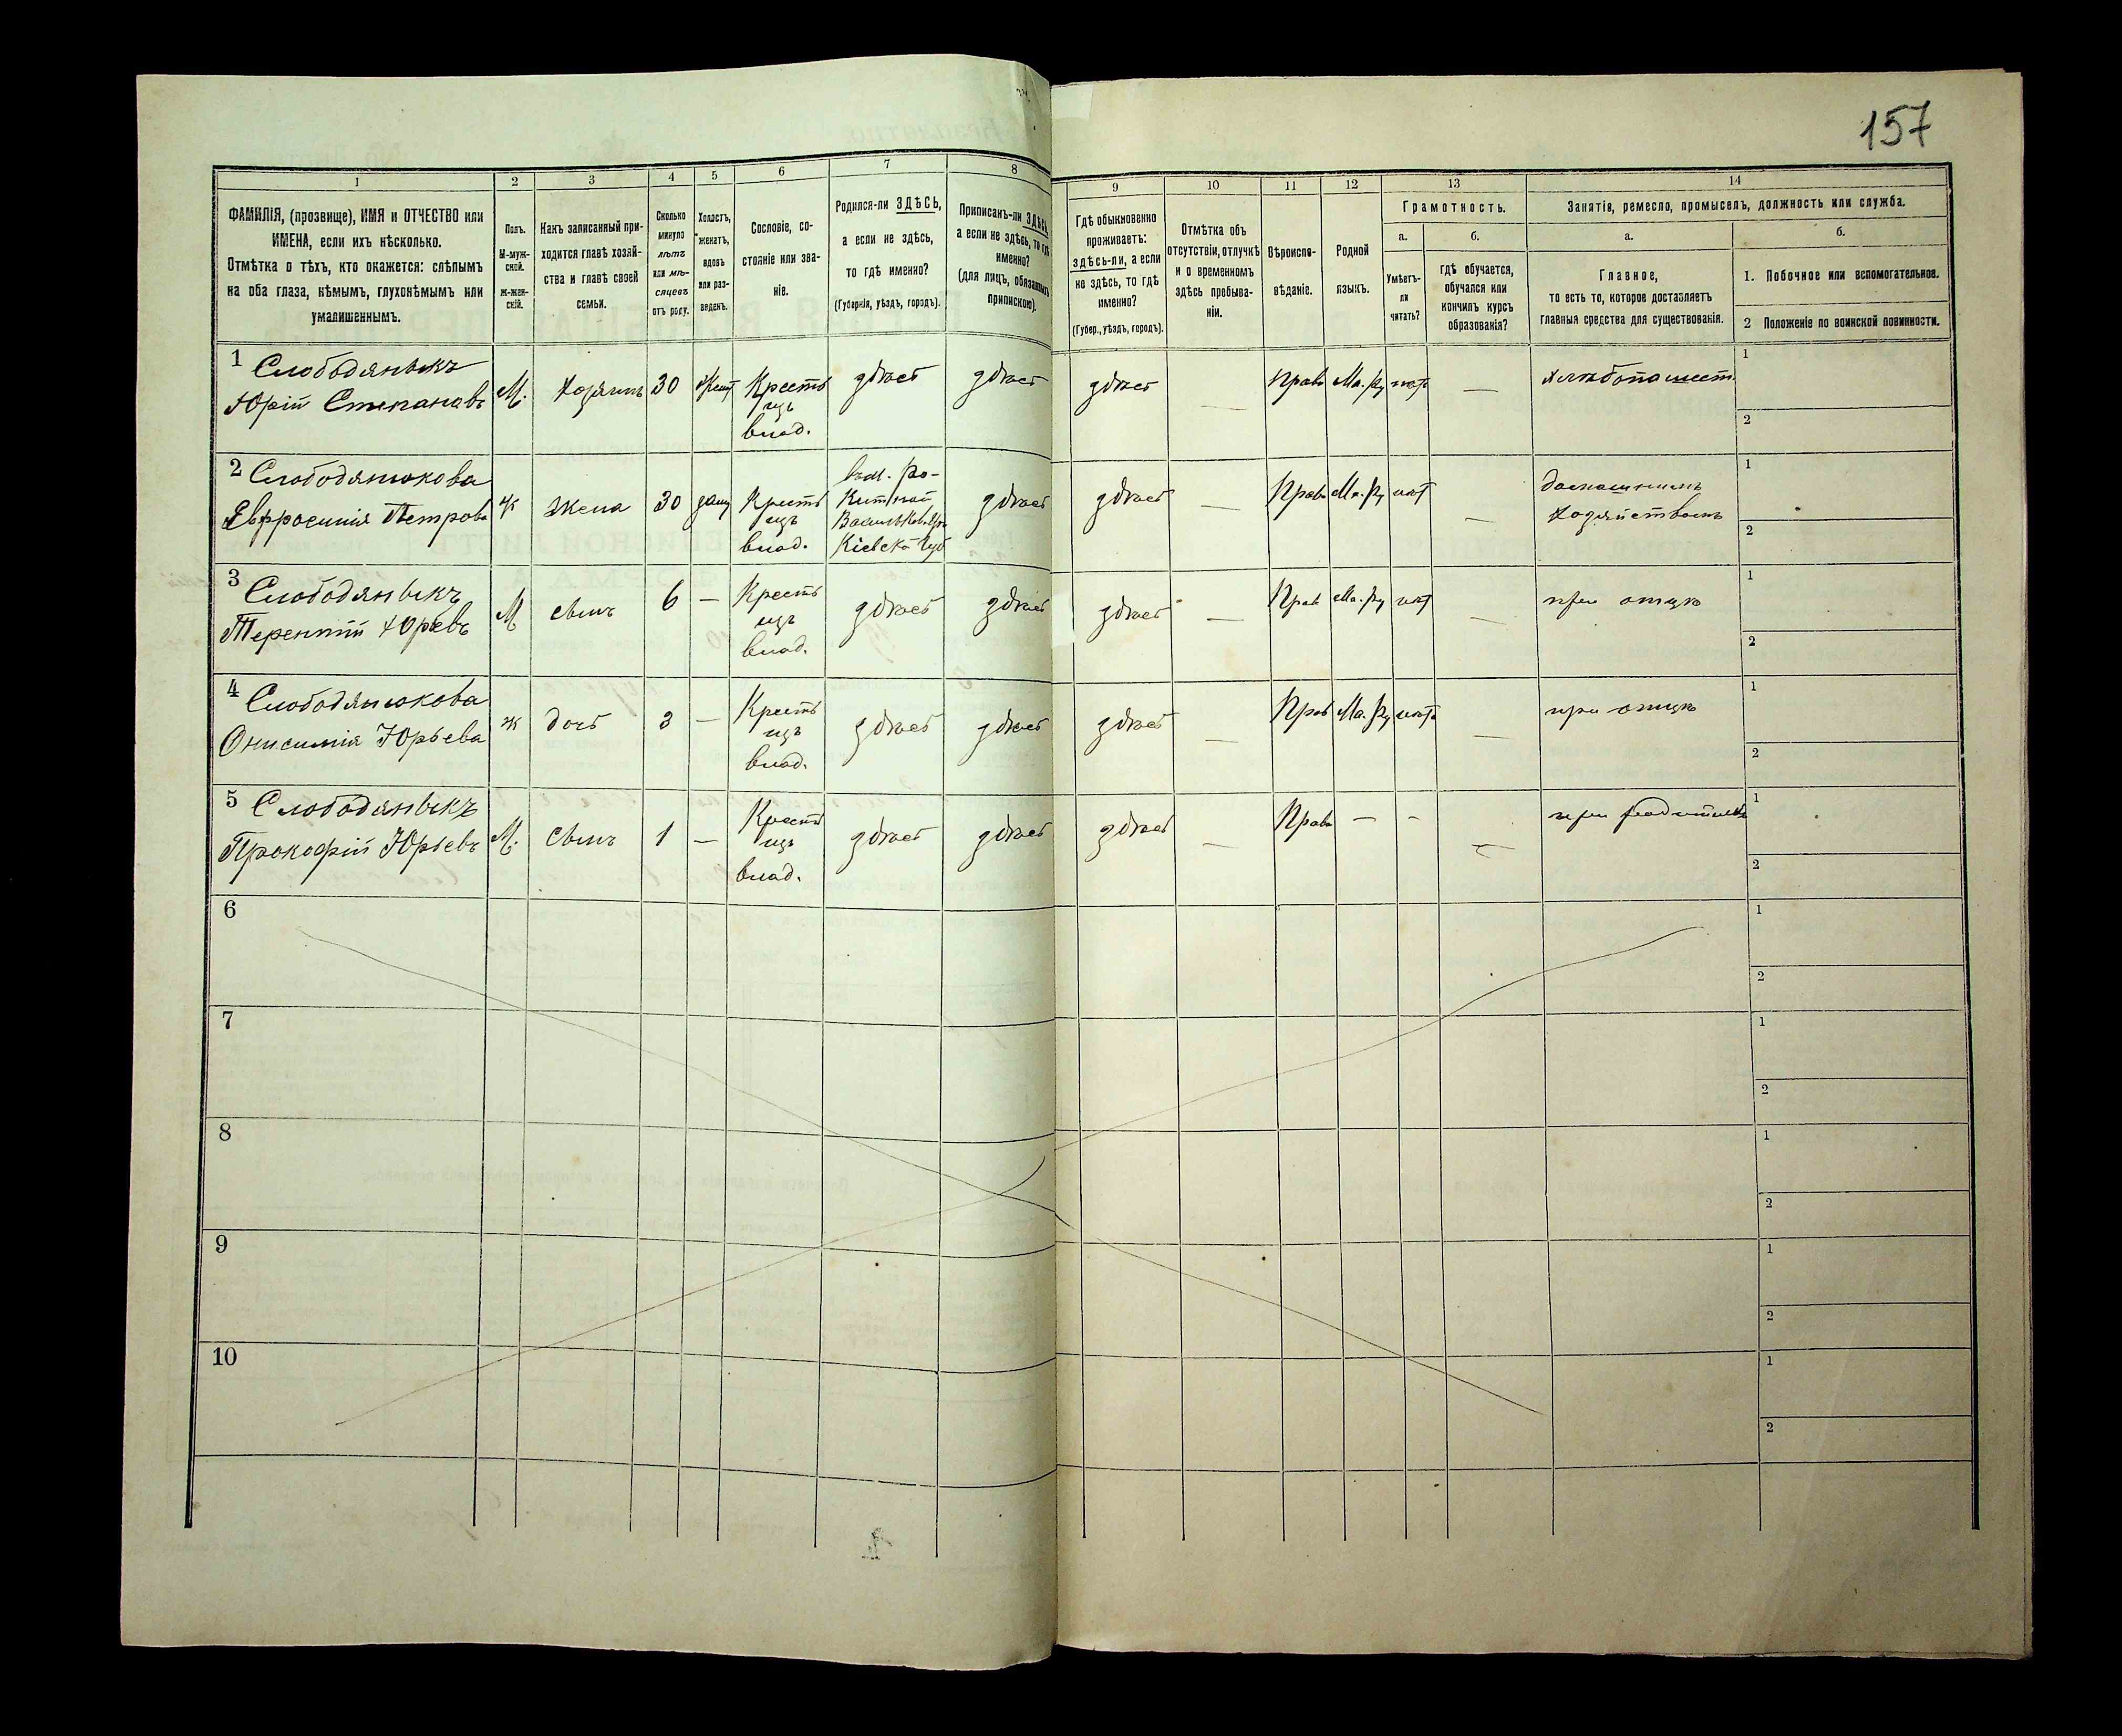 157
1
2
3
4
5
6
7
8
9
10
11
12
13
14
ФАМИЛІЯ, (прозвище), ИМЯ и ОТЧЕСТВО или
ИМЕНА, если ихъ нѣсколько.
Отмѣтка о тѣхъ, кто окажется: слѣпымъ
на оба глаза, нѣмымъ, глухонѣмымъ или
умалишеннымъ.
Полъ.
М-муж-
ской.
Ж-жен-
скій.
Какъ записанный при-
ходится главѣ хозяй-
ства и главѣ своей
семьи.
Сколько
минуло
лѣтъ
или мѣ-
сяцевъ
отъ роду.
Холостъ,
женатъ,
вдовъ
или раз-
веденъ.
Сословіе, со-
стояніе или зва-
ніе.
Родился-ли ЗДѢСЬ,
а если не здѣсь,
то гдѣ именно?
(Губернія, уѣздъ, городъ).
Приписанъ-ли ЗДѢСЬ,
а если не здѣсь, то гдѣ
именно?
(для лицъ, обязанныхъ
припискою).
Гдѣ обыкновенно
проживаетъ:
здѣсь-ли, а если
не здѣсь, то гдѣ
именно?
(Губер., уѣздъ, городъ).
Отмѣтка объ
отсутствіи, отлучкѣ
и о временномъ
здѣсь пребыва-
ніи.
Вѣроиспо-
вѣданіе.
Родной
языкъ.
Грамотность.
а.
б.
Умѣетъ-
ли
читать?
гдѣ обучается,
обучался или
кончилъ курсъ
образованія?
Занятія, ремесло, промыселъ, должность или служба.
а.
б.
Главное,
то есть то, которое доставляетъ
главныя средства для существованія.
1. Побочное или вспомогательное.
2 Положеніе по воинской повинности.
1 Слободяныкъ
Юрій Степановъ
М.
Хозяинъ
30
Жен
Крестъ
изъ
влад.
здѣсь
здѣсь
здѣсь
—
Прав
Ма. Ру
нѣтъ
—
Хлѣбопашест.
1
2
2 Слободянюкова
Евфросинія Петрова
Ж
жена
30
зам
Крестъ
изъ
влад.
Ро-
Китной
Васильков. у.
Кіевск. Губ
здѣсь
здѣсь
—
Прав
Ма. Ру
нѣт
—
домашнимъ
хозяйствомъ
1
2
3 Слободяныкъ
Терентій Юрьевъ
М
сынъ
6
—
Крестъ
изъ
влад.
здѣсь
здѣсь
здѣсь
—
Прав
Ма. Ру
нѣт
—
при отцѣ
1
2
4 Слободянюкова
Онисимія Юрьева
ж
дочь
3
—
Крестъ
изъ
влад.
здѣсь
здѣсь
здѣсь
—
Прав
Ма. Ру
нѣтъ
—
при отцѣ
1
2
5 Слободяныкъ
Прокофій Юрьевъ
М.
сынъ
1
—
Крестъ
изъ
влад.
здѣсь
здѣсь
здѣсь
—
Прав
—
-
—
при родителяхъ
1
2
6
1
2
7
1
2
8
1
2
9
1
2
10
1
2